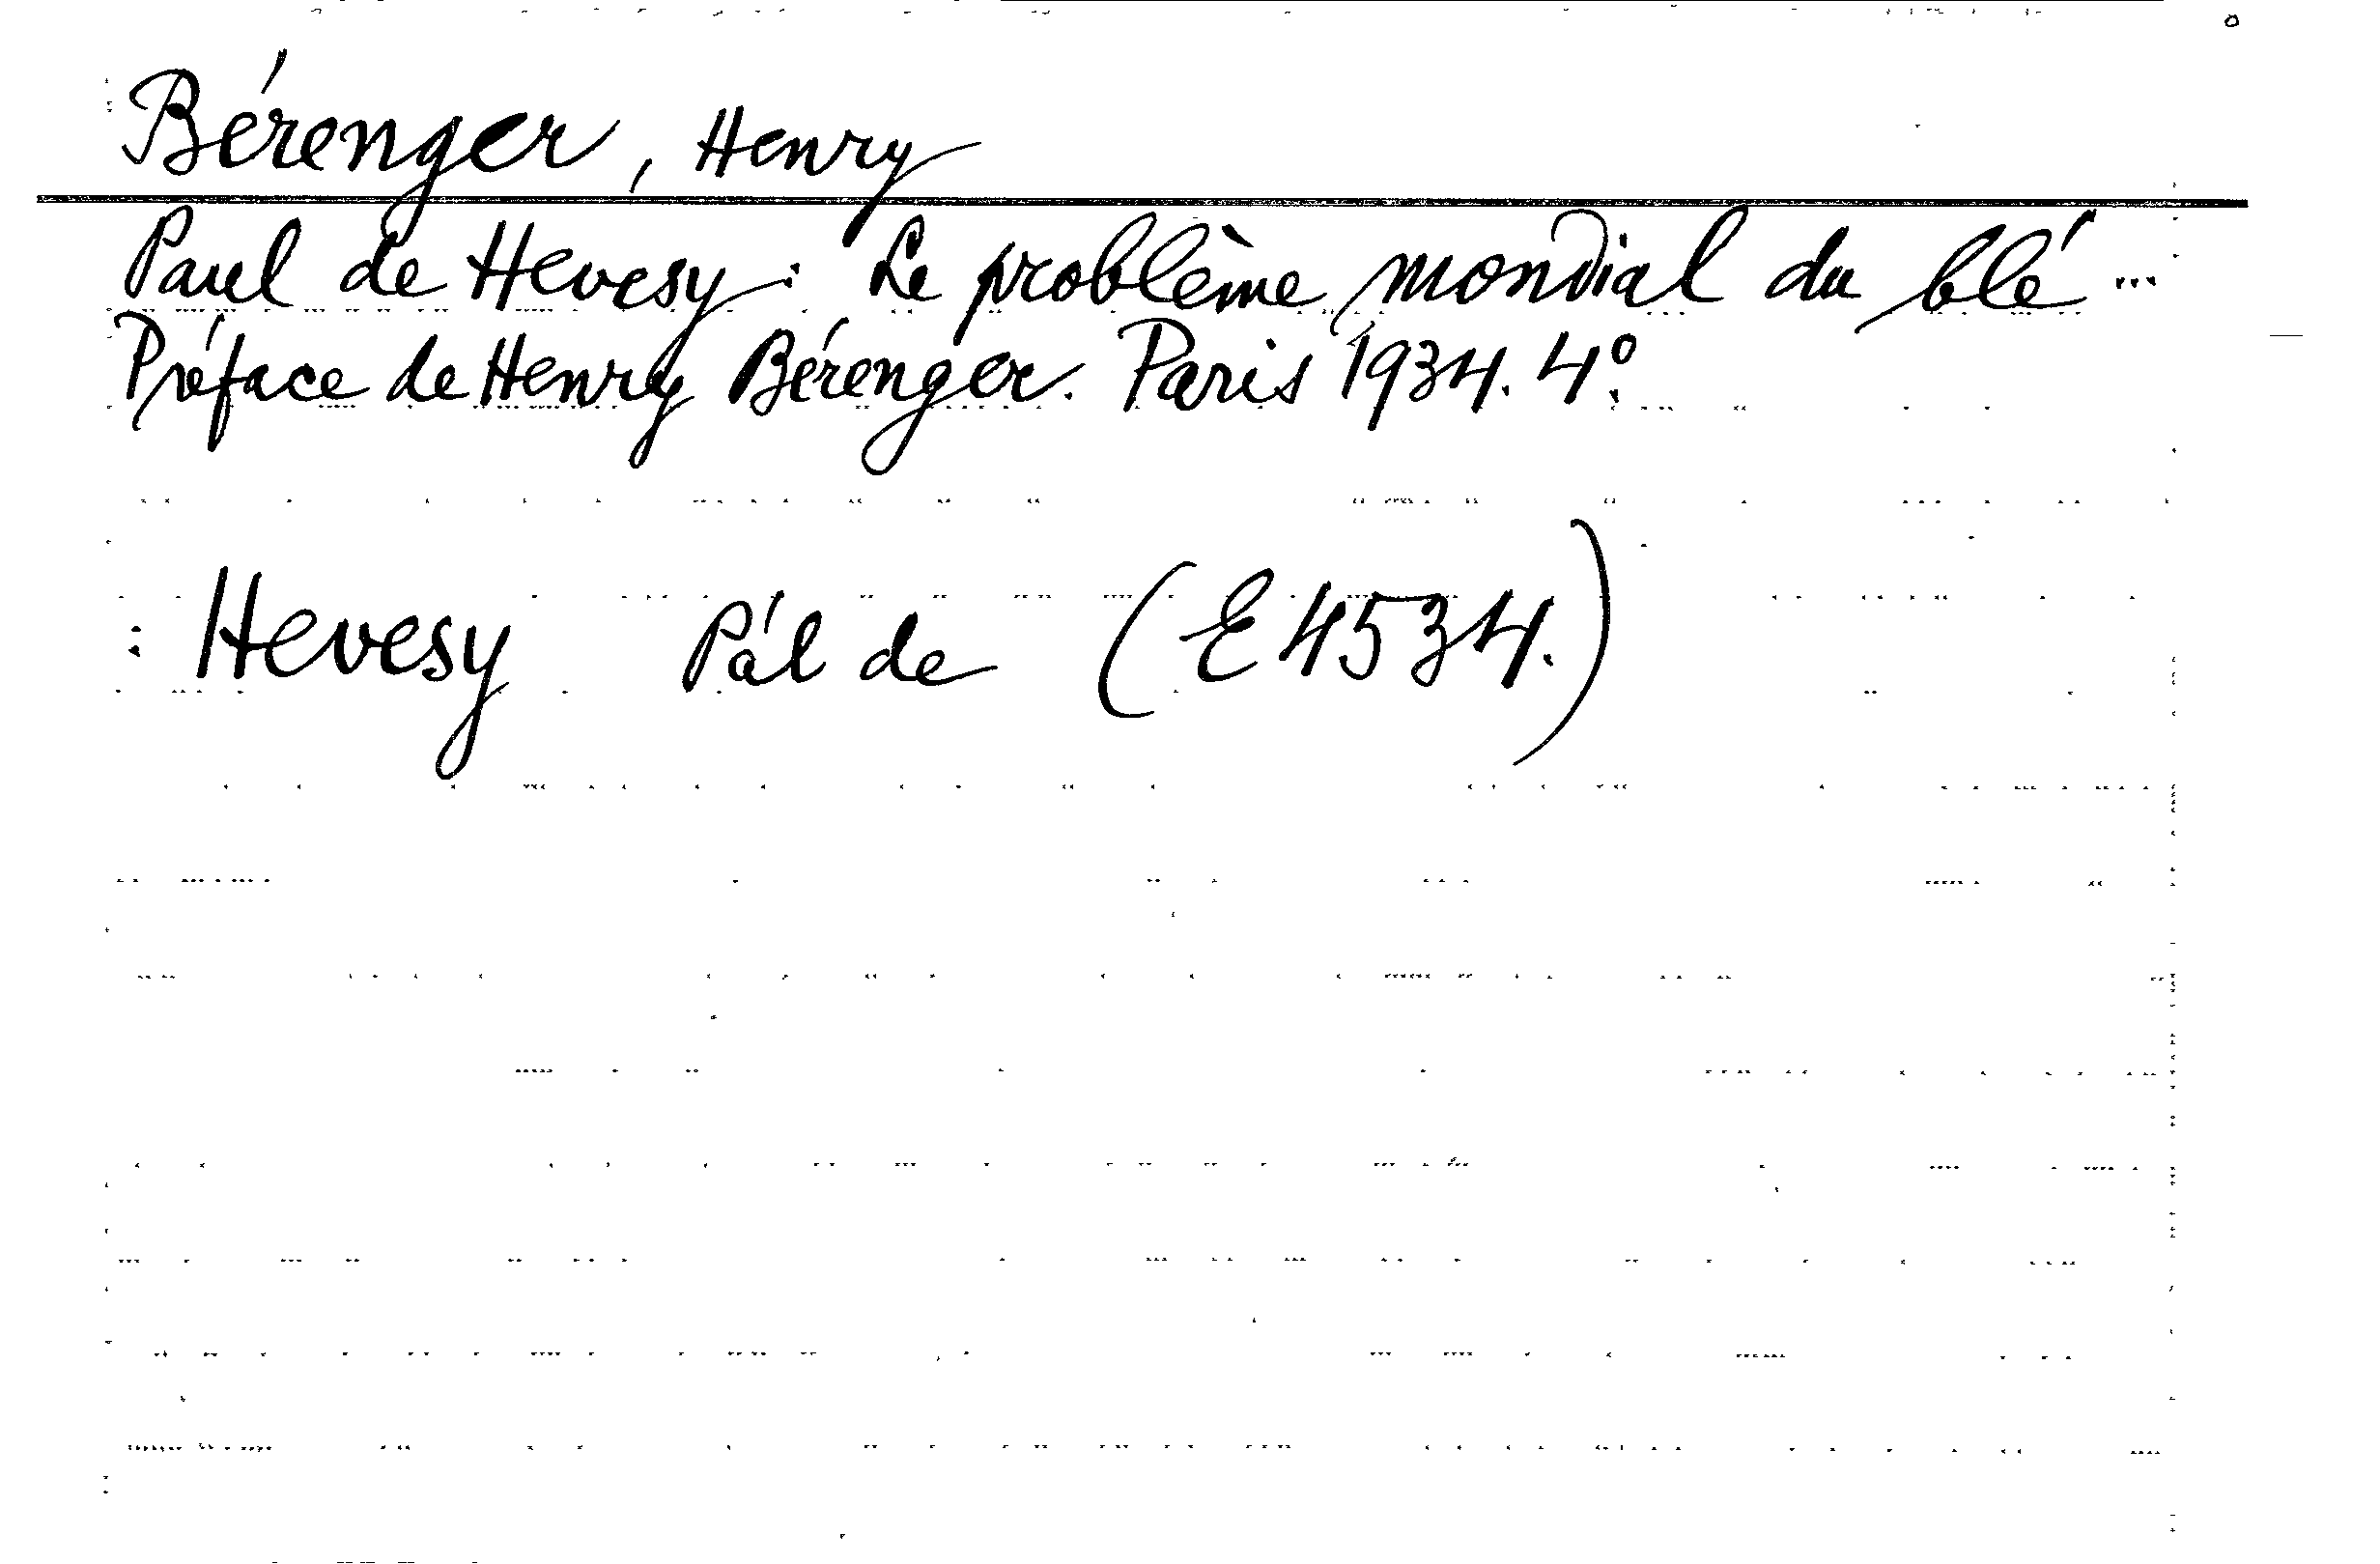 Bérenger, Henry
Paul de Hevesy: Le problème mondial du blé ...
Préface de Henry Bérenger. Paris 1934. 4°.
: Hevesy Pál de (E 4534.)